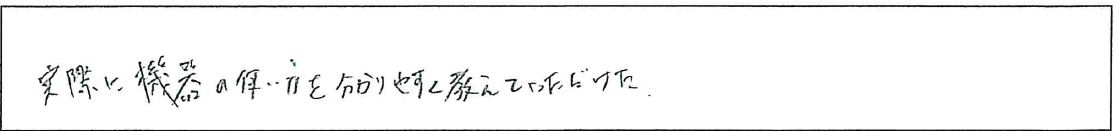 実際に機器の使い方を分かりやすく教えていただけた.